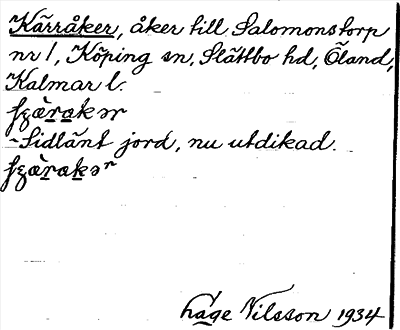 Kärråker, åker till Salomonstorp
nr 1, Köping sn, Slättbo hd, Öland,
Kalmar l.
-Sidlänt jord, nu utdikad.
Håge Nilsson 1934